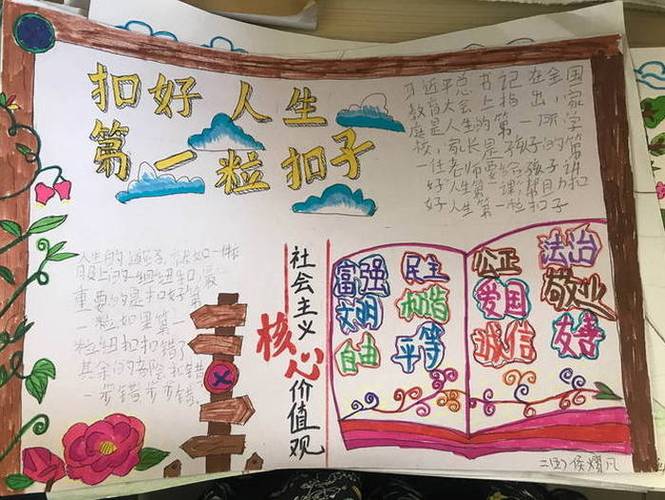 扣好人生
第一粒扣子
习近平总书记在全国
教育大会上指出,家
庭是人生的第一所学
校,家长是孩子的第
一任老师要给孩子讲
好人生第一课帮助扣
好人生第一粒扣子
人生的就如一件
服上的一组纽扣,最
重要的是扣好第
一粒如果第一
粒纽扣扣错了
其余的扣错
一步错,步步错。
社会主义核心价值观
富强 民主
文明 和谐
自由 平等
公正 法治
爱国 敬业
诚信 友善